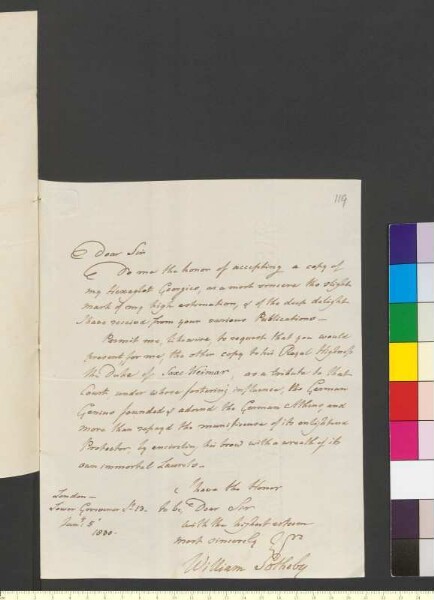 119
Dear Sir
Do me the honor of accepting a copy of
my Hexaglot Georgics, as a most sincere tho slight
mark of my high estimation, & of the deep delight
I have received from your various Publications—
Permit me, likewise, to request that you would
present for me, the other copy to his Royal Highness
the Duke of Saxe Weimar, as a tribute to that
Court, under whose fostering influence, the German
Genius founded & adorned the German Athens, and
more than repayd the munificence of its enlightened
Protector, by encircling his brow with a wreath of its
own immortal Laurels—
I have the Honor
to be Dear Sir
with the highest esteem
most sincerely yrs
William Sotheby
London—
Lower Grosvenor St. 13.
Jany 5
1830.